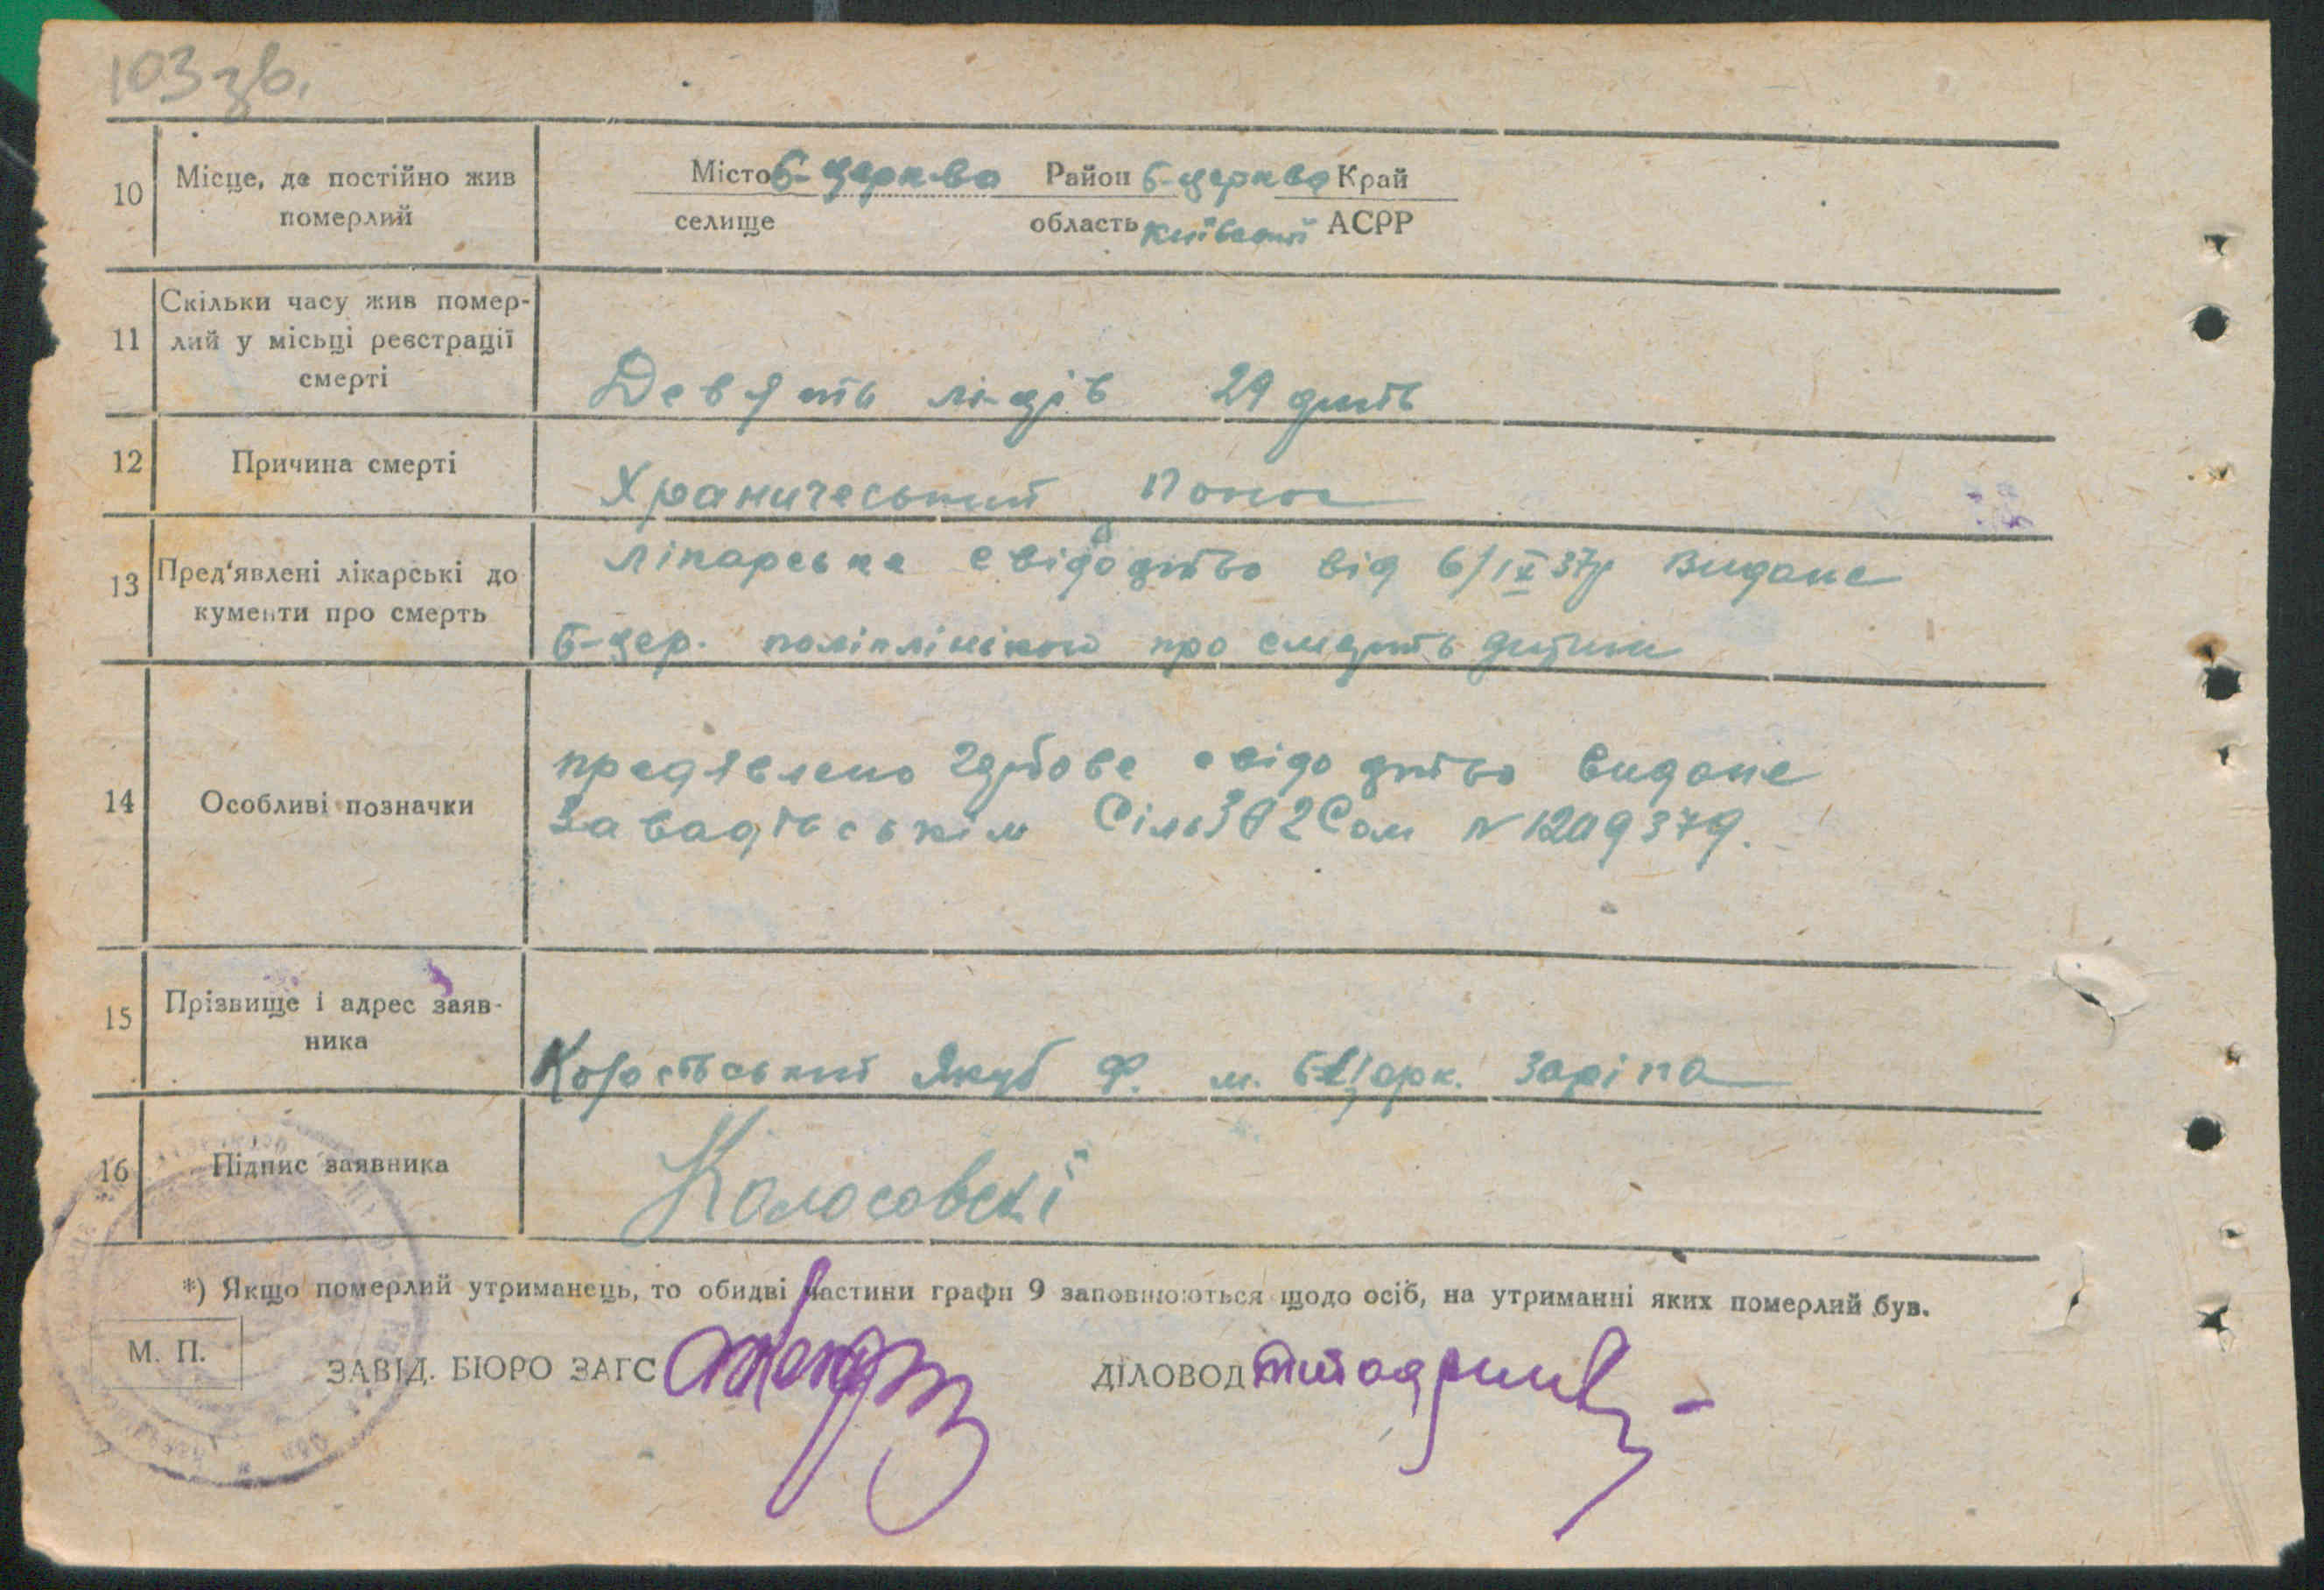 103 зв.
10 Місце, де постійно жив померлий
Місто Б-церква Район Б-церква Край
селище область Київський АСРР
11 Скільки часу жив помер-
лий у місьці реєстрації
смерті
Девять 29 днів
12 Причина смерті
Храничеський понос
13 Пред'явлені лікарські до
кументи про смерть
лікарське свідоцтво від 6/IX 37р видане
Б-цер. поліклінікою про смерть дитини
14 Особливі позначки
предявлено свідоцтво видане
№ 1209379.
15 Прізвище і адрес заяв-
ника
Якуб Ф. м. Б Церк. Заріча
16 Підпис заявника
Колосовскі
*) Якщо померлий утриманець, то обидві частини графи 9 заповнюються щодо осіб, на утриманні яких померлий був.
М. П.
ЗАВІД. БЮРО ЗАГС ДІЛОВОД